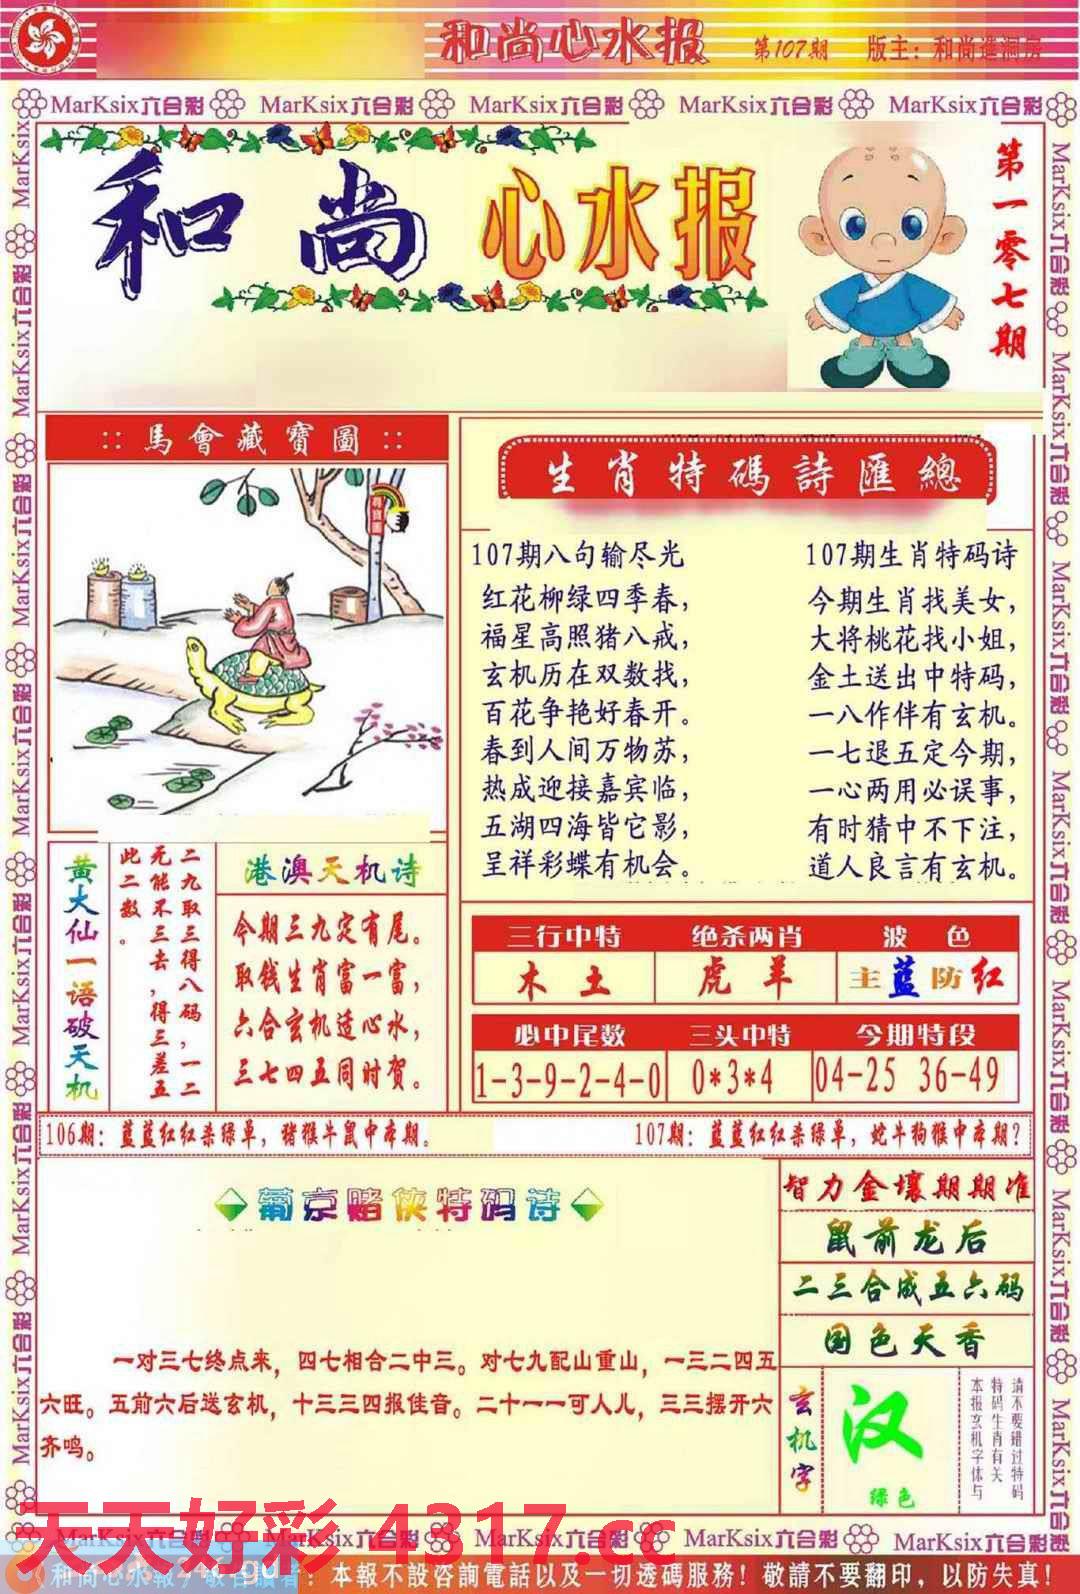 和尚心水报 第107期 版主：和尚进洞房
MarKsix六合彩 MarKsix六合彩 MarKsix六合彩 MarKsix六合彩 MarKsix六合彩
和尚心水报
第一零七期
::馬會藏寶圖::
尋寶圖
生肖特碼詩匯總
107期八句输尽光
红花柳绿四季春，
福星高照猪八戒，
玄机历在双数找，
百花争艳好春开。
春到人间万物苏，
热成迎接嘉宾临，
五湖四海皆它影，
呈祥彩蝶有机会。
107期生肖特码诗
今期生肖找美女，
大将桃花找小姐，
金土送出中特码，
一八作伴有玄机。
一七退五定今期，
一心两用必误事，
有时猜中不下注，
道人良言有玄机。
黄大仙一语破天机
二九取三得八码，一二
无能不三去，得三差五
此二数。
港澳天机诗
今期三九定有尾。
取钱生肖富一富，
六合玄机适心水，
三七四五同时贺。
三行中特 绝杀两肖 波色
木土 虎羊 主蓝防红
必中尾数 三头中特 今期特段
1-3-9-2-4-0 0*3*4 04-25 36-49
106期：蓝蓝红红杀绿单，猪猴牛鼠中本期。
107期：蓝蓝红红杀绿单，蛇牛狗猴中本期？
葡京赌侠特码诗
一对三七终点来，四七相合二中三。对七九配山重山，一三二四五
六旺。五前六后送玄机，十三三四报佳音。二十一一可人儿，三三摆开六
齐鸣。
智力金壤期期准
鼠前龙后
二三合成五六码
国色天香
玄机字
汉
绿色
请不要错过特码
特码生肖有关
本报玄机字体与
MarKsix六合彩 MarKsix六合彩 MarKsix六合彩 MarKsix六合彩 MarKsix六合彩
天天好彩 4317.cc
和尚心水報敬告讀者：本報不設咨詢電話以及一切透碼服務！敬請不要翻印，以防失真！